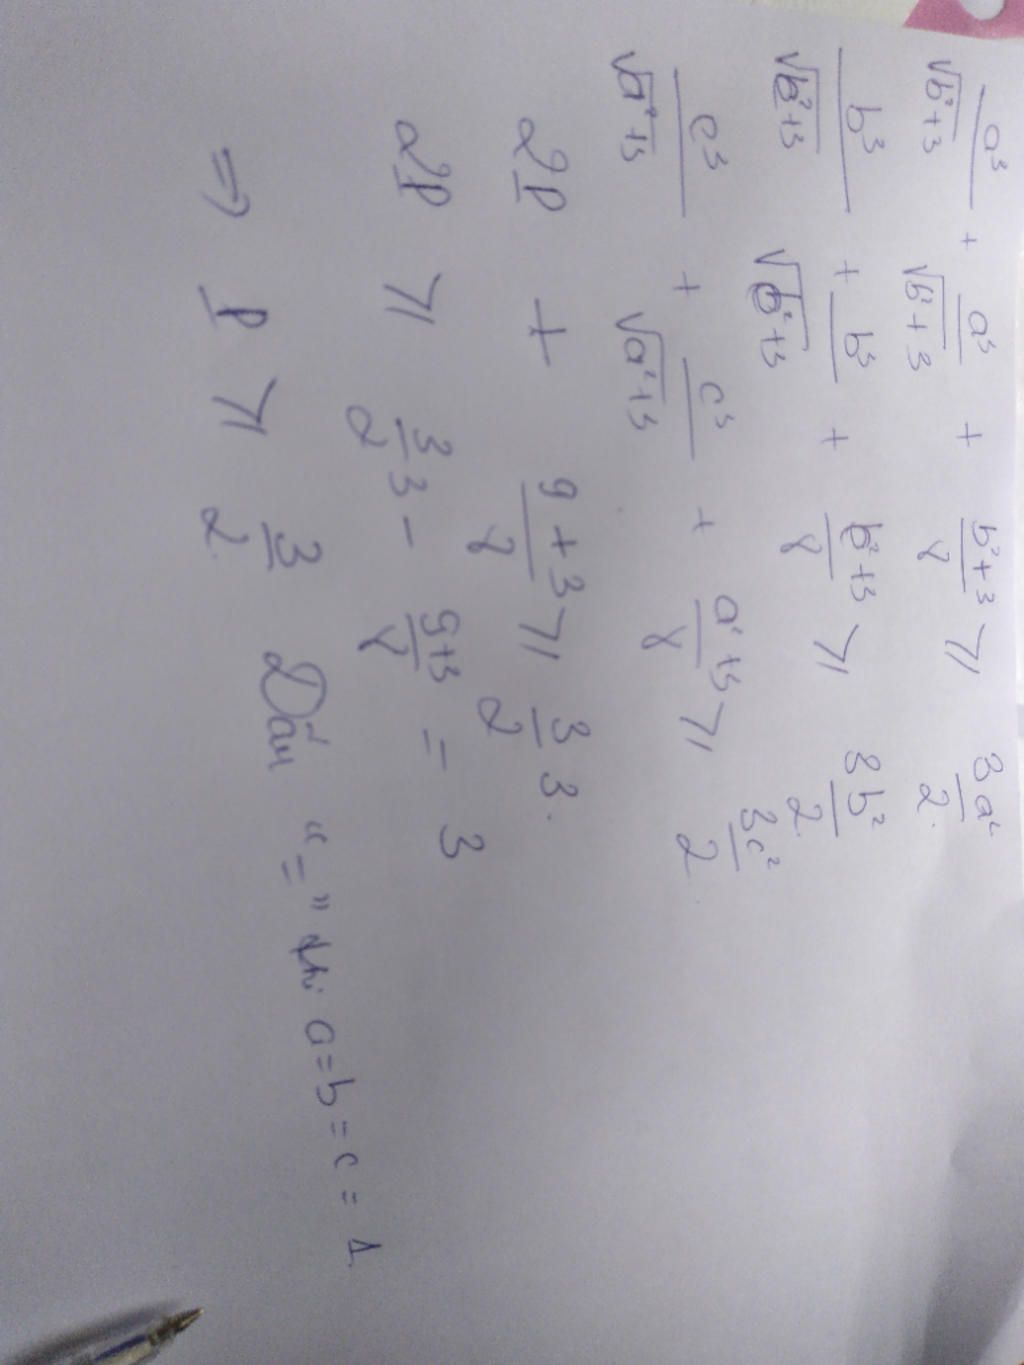 a³/√(b²+3) + a³/√(b²+3) + (b²+3)/8 ≥ 3a²/2.
b³/√(b²+3) + b³/√(b²+3) + (b²+3)/8 ≥ 3b²/2.
c³/√(a²+3) + c³/√(a²+3) + (a²+3)/8 ≥ 3c²/2
2P + (9+3)/8 ≥ 3/2 3.
2P ≥ 3/2 3 - (9+3)/8 = 3
⇒ P ≥ 3/2. Dấu "=" khi a=b=c=1.